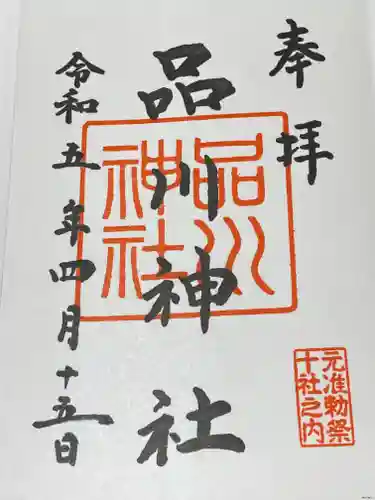 奉拝
品川神社
令和五年四月十五日
品川
神社
元准勅祭
十社之内